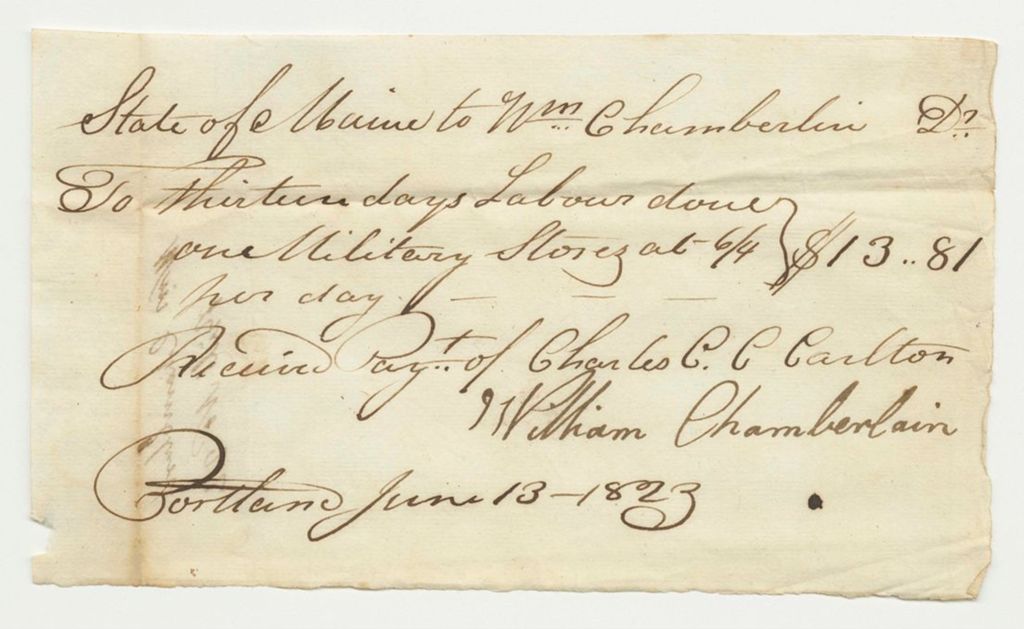 State of Maine to Wm Chamberlin Dr
To Thirteen days Labour done
one Military Stores at 6/4 $13..81
per day
Received Payt of Charles C. C Carlton
William Chamberlain
Portland June 13-1823